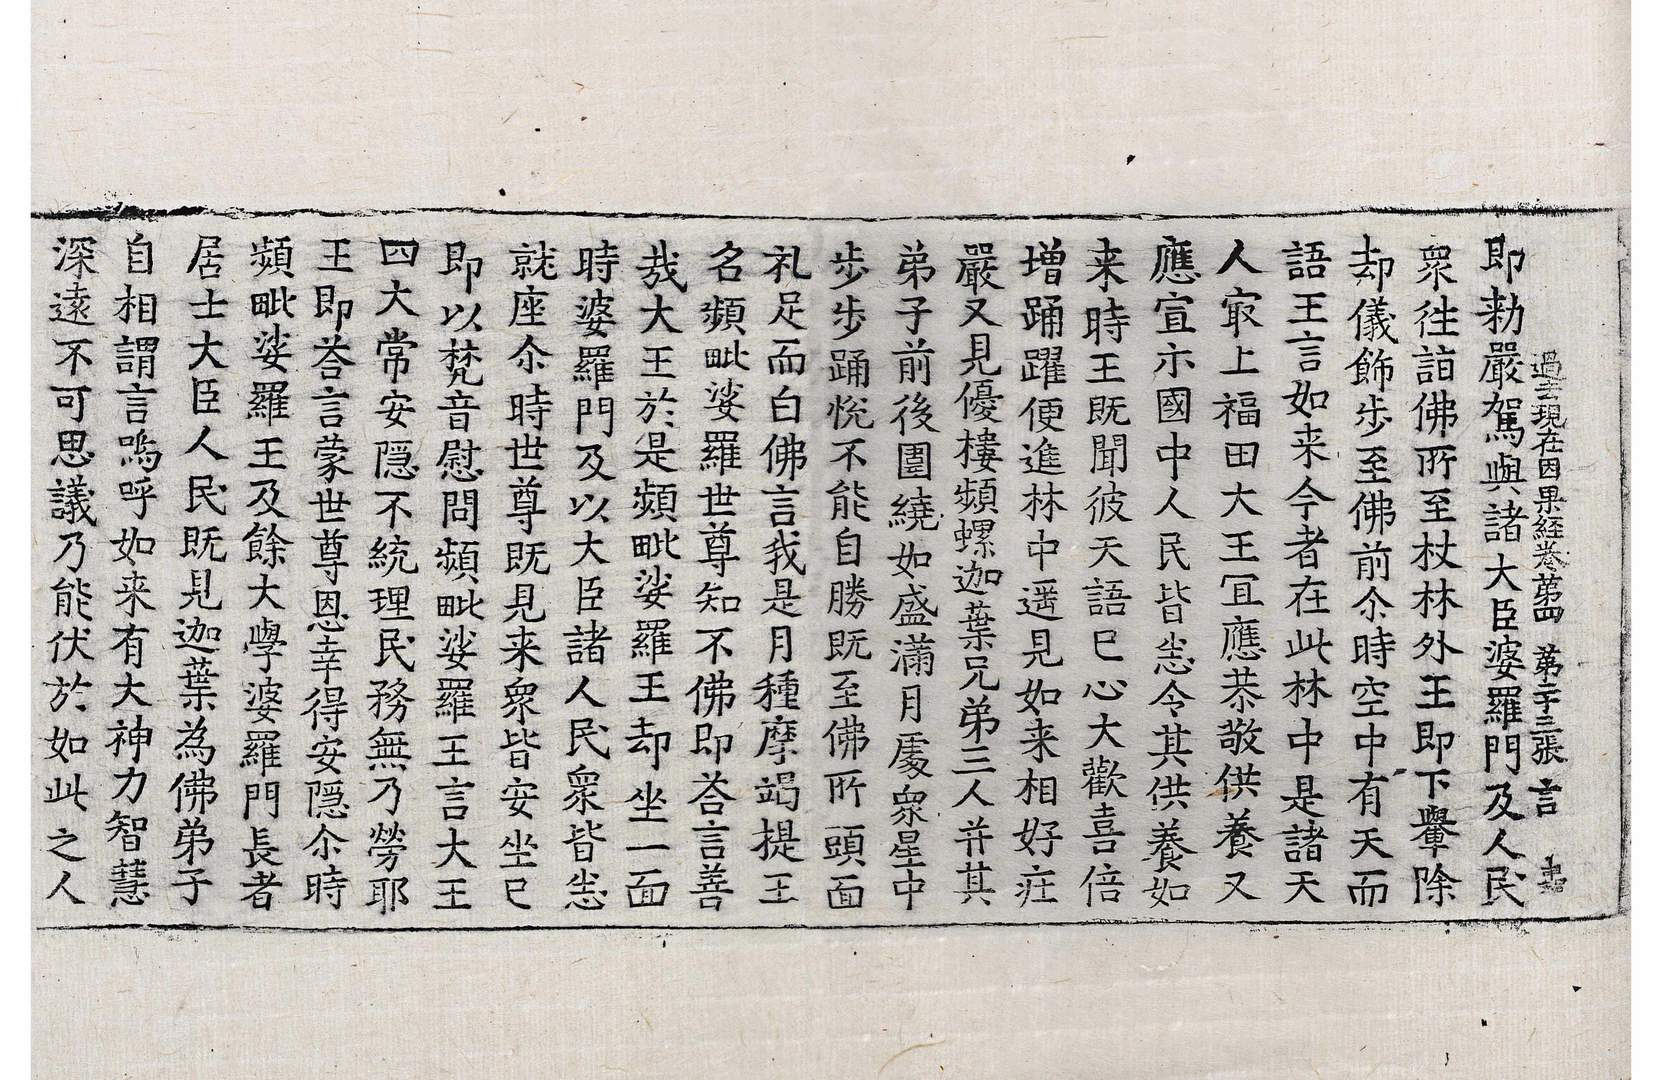 過去現在因果経卷苐四　苐二十三張　言
即勑嚴駕與諸大臣婆羅門及人民
衆徃詣佛所至杖林外王即下轝除
却儀飾步至佛前尒時空中有天而
語王言如来今者在此林中是諸天
人㝡上福田大王冝應恭敬供養又
應宣示國中人民皆悉令其供養如
来時王既聞彼天語已心大歡喜倍
增踊躍便進林中遥見如来相好莊
嚴又見優樓頻螺迦葉兄弟三人并其
弟子前後圍繞如盛滿月處衆星中
步步踊悅不能自勝既至佛所頭面
礼足而白佛言我是月種摩竭提王
名頻毗娑羅世尊知不佛即荅言善
㢤大王於是頻毗娑羅王却坐一面
時婆羅門及以大臣諸人民衆皆悉
就座尒時世尊既見来衆皆安坐已
即以梵音慰問頻毗娑羅王言大王
四大常安隱不統理民務無乃勞耶
王即荅言蒙世尊恩幸得安隱尒時
頻毗娑羅王及餘大學婆羅門長者
居士大臣人民既見迦葉為佛弟子
自相謂言嗚呼如来有大神力智慧
深遠不可思議乃能伏於如此之人